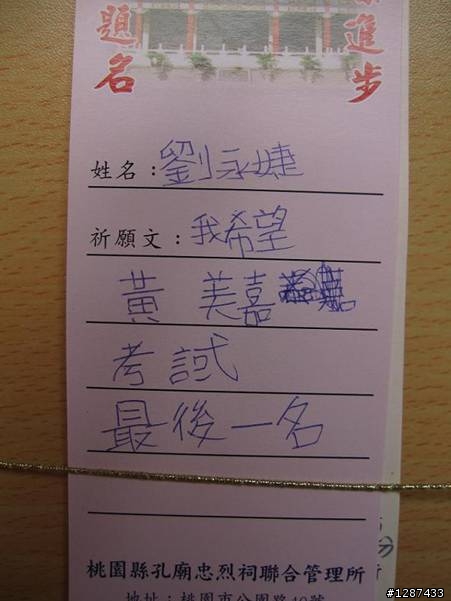 題名
進步
姓名：劉永婕
祈願文：我希望
黃 美嘉
考試
最後一名
桃園縣孔廟忠烈祠聯合管理所
地址：桃園市公園路42號
份
#1287433